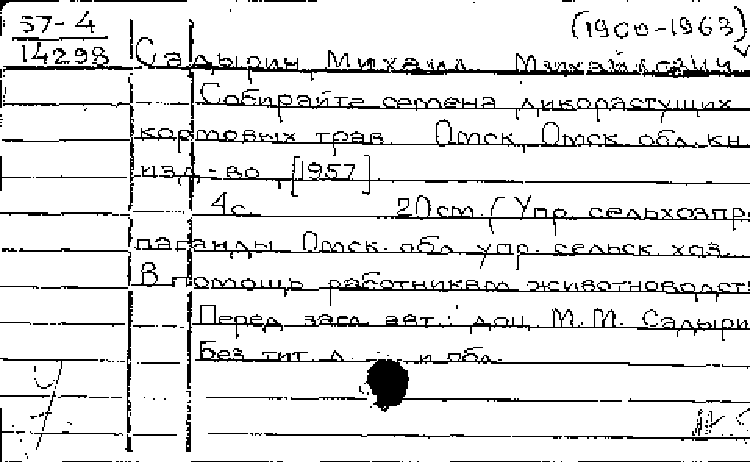 57-4 (1900-1963)
14298 Садырин, Михаил Михайлович
Собирайте семена дикорастущих
кормовых трав. Омск, Омск. обл. кн.
изд-во, [1957].
4с. 20см. (Упр. сельхозпро
паганды Омск. обл. упр. сельск. хоз.
В помощь работникам животноводст
Перед загл. авт.: доц. М.М. Садырин
Без тит. л. и обл.